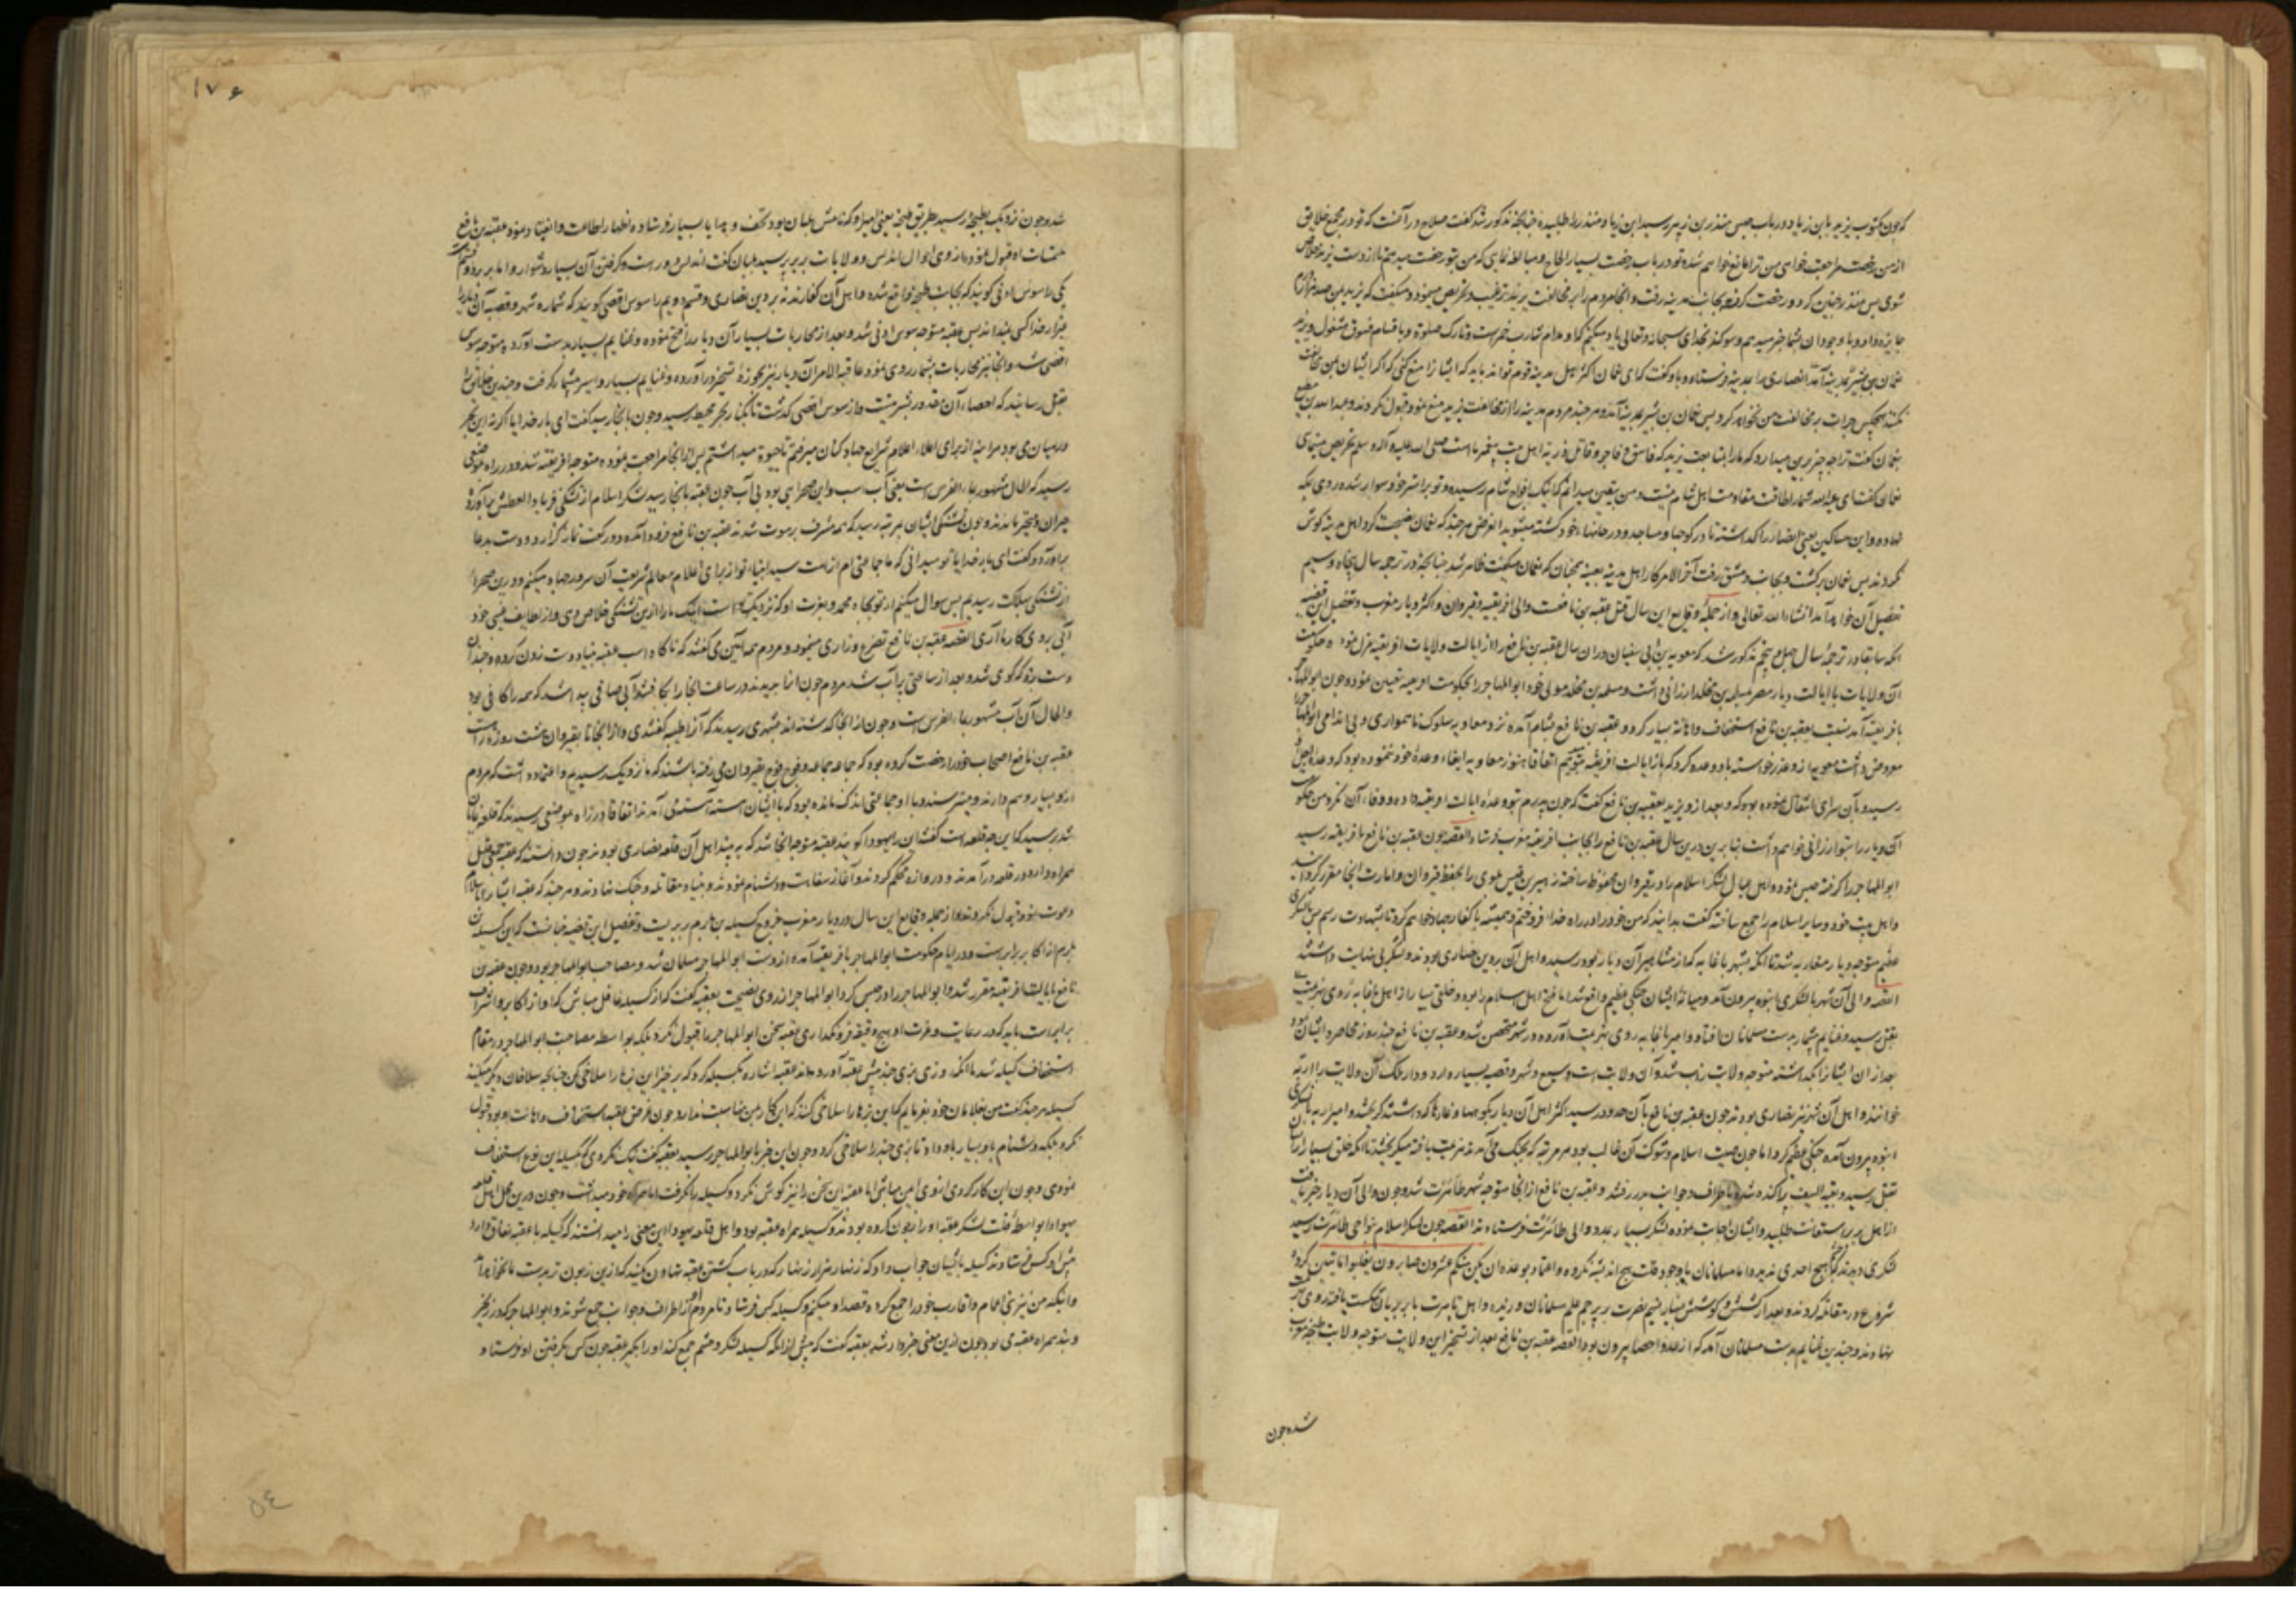 که چون مکتوب یزید باین زیاد در باب حبس منذر بن زبیر رسید ابن زیاد منذر را طلبیده چنانچه مذکور شد گفت صلاح در آنست که تو در مجمع خلایق
از من رخصت مراجعت خواهی من ترا مانع خواهم شد تو در باب رخصت بسیار الحاح و مبالغه نمای که من بتو رخصت میدهم تا از دست یزید خلاص
شوی پس منذر چنین کرد و رخصت گرفته بجانب مدینه رفت و آنجا مردم را بر مخالفت یزید ترغیب و تحریص مینمود و میگفت که یزید بمن صد هزار درم
جایزه داد و با وجود آن شما خبر میدهم و سوگند بخدای سبحانه و تعالی یاد میکنم که او مدام شارب خمرست و تارک صلوة و باقسام فسوق مشغول و یزید
نعمان بن بشیر انصاری را بمدینه فرستاده و باو گفت که ای نعمان اکثر اهل مدینه قوم تواند باید که ایشانرا منع کنی که اگر ایشان بمن مخالفت
نکنند هیچکس جرات بر مخالفت من نخواهد کرد پس نعمان بن بشیر بمدینه آمد و هر چند مردم مدینه را از مخالفت یزید منع نمود قبول نکردند و عبدالله بن مطیع
بنعمان گفت ترا چه چیز برین میدارد که ما را بمتابعت یزید که فاسق و فاجر و قاتل ذریه اهل بیت پیغمبر ماست صلی الله علیه و آله و سلم تحریص مینمای
نعمان گفت ای عبدالله شما را طاقت مقاومت اهل شام نیست و من یقین میدانم که اینک افواج شام رسیده و تو بر استر خود سوار شده روی بمکه
نهاده و این مساکین یعنی انصار را گذاشته تا در کوچها و مساجد و در خانهاء خود کشته میشوند الغرض هر چند که نعمان نصیحت کرد اهل مدینه گوش
نکردند پس نعمان برگشت و بجانب دمشق رفت آخر الامر کار اهل مدینه بعینه بهمان که نعمان میگفت ظاهر شد چنانچه در ترجمه سال پنجاه و سیم
تفصیل آن خواهد آمد انشاء الله تعالی و از جمله وقایع این سال قتل عقبه بن نافعست والی افریقیه و قیروان و اکثر دیار مغرب و تفصیل این قضیه
آنکه سابقا در ترجمه سال چهل و پنجم مذکور شد که معویه بن ابی سفیان در آن سال عقبه بن نافع را از ایالت ولایات افریقیه عزل نموده حکومت
آن ولایات با ایالت دیار مصر بمسلمه بن مخلد ارزانی داشت و مسلمه بن مخلد مولی خود ابوالمهاجر را بحکومت افریقیه تعیین نمود و چون ابوالمهاجر
بافریقیه آمد نسبت بعقبه بن نافع استخفاف و اهانة بسیار کرد و عقبه بن نافع بشام آمده نزد معاویه سلوک ناهمواری و بی اندامی ابوالمهاجر
معروض داشت معویه از وعذر خواسته باو وعده کرد که باز ایالت افریقیه بتو میدهم اتفاقا هنوز معاویه ایفاء وعده خود ننموده بود که وعده اجل او
رسید و بآن سرای انتقال نموده بود که بعد از و یزید بعقبه بن نافع گفت که چون پدرم بتو وعده ایالت افریقیه داده و وفاء آن نکرد من حکومت
آن دیار را بتو ارزانی خواهم داشت بنابرین درین سال عقبه بن نافع را بجانب افریقیه مغرب فرستاد القصه چون عقبه بن نافع بافریقیه رسید
ابوالمهاجر را گرفته حبس نمود و اهل و عیال لشکر اسلام را در قیروان محفوظ ساخته زهیر بن قیس بلوی را بحفظ قیروان و امارت آنجا مقرر گردانید
و اهل بیت خود و سایر اسلام را جمع ساخته گفت بدانید که من خود را در راه خدا فروختم و همیشه با کفار جهاد خواهم کرد تا بشهادت رسم پس با لشکری
عظیم متوجه دیار مغاربه شد تا آنکه بشهر باغایه که از مشاهیر آن دیار بود رسید و اهل آن بر دین نصاری بودند و لشکر بی نهایت داشتند
القصه والی آن شهر با لشکری انبوه بیرون آمد و میانه ایشان جنگی عظیم واقع شد اما فتح اهل اسلام را بود و خلقی بسیار از اهل باغایه روی بهزیمت
بقتل رسید و غنایم بیشمار بدست مسلمانان افتاد و امیر باغایه روی بهزیمت آورده در شهر متحصن شد و عقبه بن نافع چند روز محاصره ایشان نمود
بعد از آن ایشانرا گذاشته متوجه ولایت زاب شد و آن ولایت است وسیع و شهر و قصبه بسیار دارد و دار ملک آن ولایت را اربه
خوانند و اهل آن شهر نیز نصاری بودند چون عقبه بن نافع بآن حدود رسید اکثر اهل آن دیار بکوهها و غارها گذاشتند گریختند و امیر اربه با لشکری
انبوه بیرون آمده جنگی عظیم کرد اما چون صیت اسلام و شوکت آن غالب بود هر مرتبه که بجنگ می آمدند هزیمت یافته میگریختند تا آنکه خلق بسیار از ایشان
بقتل رسید و بقیة السیف پراکنده شده باطراف و جوانب بدر رفتند و عقبه بن نافع از آنجا متوجه شهر طاهرت شد و چون والی آن دیار خبر یافت
از اهل بربر استعانت طلبید و ایشان اجابت نموده لشکر بسیار بمدد والی طاهرت فرستادند القصه چون لشکر اسلام بنواحی طاهرت رسید
لشکری دیدند که هیچ احدی ندیده اما مسلمانان باوجود قلت هیچ اندیشه نکرده و اعتماد بوعده ان یکن منکم عشرون صابرون یغلبوا مأتین کرده
شروع در مقاتله کردند و بعد از کشش و کوشش بسیار نسیم نصرت بر پرچم علم مسلمانان وزیده و اهل تاهرت با بربریان شکست یافته روی بهزیمت
نهادند و چندین غنایم بدست مسلمانان آمد که از عدد احصا بیرون بود القصه عقبه بن نافع بعد از تسخیر این ولایت متوجه ولایت طنجه مغرب
شد و چون
۱۷۶
شد و چون نزدیک بطنجه رسید بطریق طنجه یعنی امیر او که نامش بلیان بود تحف و هدایا بسیار فرستاده اظهار اطاعت و انقیاد نمود عقبه بن نافع
متمنیات او قبول نموده از وی احوال اندلس و ولایات بربر پرسید بلیان گفت اندلس دورست و گرفتن آن بسیار دشوار و اما بربر دو قسمست
یکی را سوس ادنی گویند که بجانب طنجه واقع شده و اهل آن کفارند نه بر دین نصاری و قسم دویم را سوس اقصی گویند که شماره شهر و قصبه آن دیار را
بغیر از خدا کسی نمیداند پس عقبه متوجه سوس ادنی شد و بعد از محاربات بسیار آن دیار را فتح نموده و غنایم بسیار بدست آورده متوجه سوس
اقصی شد و آنجا نیز محاربات بیشمار روی نمود و عاقبة الامر آن دیار نیز بحوزه تسخیر در آورده و غنایم بسیار و اسیر بیشمار گرفت و چندین خلایق را
بقتل رسانید که احصاء آن مقدور بشر نیست و از سوس اقصی گذشت تا بکنار بحر محیط رسید و چون بآنجا رسید گفت ای بار خدایا اگر نه این بحر
در میان می بود هر آینه از برای اعلاء اعلام شرایع جهاد کنان میرفتم تا حیوة میداشتم پس از آنجا مراجعت نموده متوجه افریقیه شد و در راه بموضعی
رسید که الحال مشهور بماء الفرس است یعنی آب اسب و این صحرایی بود بی آب چون عقبه بآنجا رسید لشکر اسلام از تشنگی فریاد العطش برآورده
حیران و متحیر ماندند و چون تشنگی ایشان بمرتبه رسید که همه مشرف بر موت شدند عقبه بن نافع فرود آمده دو رکعت نماز گزارد و دست بدعا
برآورد و گفت ای بار خدایا تو میدانی که ما جماعتی ام از امت سید انبیاء تو از برای اعلام معالم شریعت آن سرور جهاد میکنیم و درین صحرا
از تشنگی بهلاکت رسیدیم پس سوال میکنم از تو بجاه محمد و بعزت او که نزدیک تو است اینک ما را ازین تشنگی خلاص دهی و از لطایف غیبی خود
آبی بروی کار ما آری القصه عقبه بن نافع تضرع و زاری مینمود و مردم همه آمین میگفتند که ناگاه اسب عقبه بنیاد دست زدن کرده و چندان
دست زد که گوی شد و بعد از ساعتی پر آب شد مردم چون آنرا بدیدند در ساعت آنجا را بکافتند و آبی صافی پیدا شد که همه را کافی بود
و الحال آن آب مشهور بماء الفرس است و چون از آنجا گذشته اند بشهری رسیدند که آنرا طبنه گفتندی و از آنجا تا بقیروان هشت روزه راهست
عقبه بن نافع اصحاب خود را رخصت کرده بود که جماعه جماعه و فوج فوج بقیروان می رفته باشند که ما نزدیک رسیدیم و اعتماد داشت که مردم
ازو بسیار وهم دارند و میترسند و با او جماعتی اندک مانده بود که با ایشان آهسته آهسته می آمدند اتفاقا در راه بموضعی رسیدند که قلعه نمایان
شد پرسید که این چه قلعه است گفتند آن را یهودا گویند عقبه متوجه آنجا شد که به بیند اهل آن قلعه نصاری بودند چون دانستند که عقبه جمعی قلیل
همراه دارد در قلعه در آمدند و دروازه محکم کردند و آغاز سفاهت و دشنام نمودند و بنیاد مقاتله و جنگ نهادند و هر چند که عقبه ایشانرا باسلام
دعوت نمود قبول نکردند و از جمله وقایع این سال در دیار مغرب خروج کسیله بن لهرم بربریست و تفصیل این قضیه چنانست که این کسیله بن
لهرم از اکابر بربرست و در ایام حکومت ابوالمهاجر بافریقیه آمده از دست ابوالمهاجر مسلمان شد و مصاحب ابوالمهاجر بود و چون عقبه بن
نافع بایالت افریقیه مقرر شد و ابوالمهاجر را در حبس کرد ابوالمهاجر از روی نصیحت بعقبه گفت که از کسیله غافل مباش که او از اکابر و اشراف
بربرست باید که در رعایت و عزت او هیچ دقیقه فرو نگذاری عقبه سخن ابوالمهاجر را قبول نکرد بلکه بواسطه مصاحبت ابوالمهاجر در مقام
استخفاف کسیله شد تا آنکه روزی بزی چند پیش عقبه آوردند عقبه اشاره بکسیله کرد که برخیز این بزها را سلاخی کن چنانچه سلاخان دیگر میکنند
کسیله هر چند گفت من غلامان خود بفرمایم که این بزها را سلاخی کنند که این کار بمن مناسبت ندارد چون غرض عقبه استخفاف و اهانت او بود قبول
نکرد بلکه دشنام باو بسیار داد تا بزی چند را سلاخی کرد و چون این خبر بابوالمهاجر رسید بعقبه گفت نیک نکردی که بکسیله این نوع استخفاف
نمودی و چون این کار کردی از وی ایمن مباش اما عقبه این سخن را نیز گوش نکرد و کسیله را نگرفت اما همراه خود میداشت و چون درین محل اهل قلعه
یهودا بواسطه قلت لشکر عقبه او را زبون کرده بودند و کسیله همراه عقبه بود و اهل قلعه یهودا این معنی را میدانستند که کسیله با عقبه نفاق دارد
پیش او کس فرستادند کسیله بایشان جواب داد که زنهار هزار زنهار که در باب کشتن عقبه تهاون نکنید که ازین زبون تر بدست ما نخواهد آمد
و اینکه من نیز بنی اعمام و اقارب خود را جمع کرده قصد او میکنم و کسیله کس فرستاد تا مردم او از اطراف و جوانب جمع شوند و ابوالمهاجر که در زنجیر
و بند همراه عقبه می بود چون ازین معنی خبردار شد بعقبه گفت که پیش از آنکه کسیله لشکر و حشم جمع کند او را بگیر عقبه چون کس بگرفتن او فرستاد و
۵۴